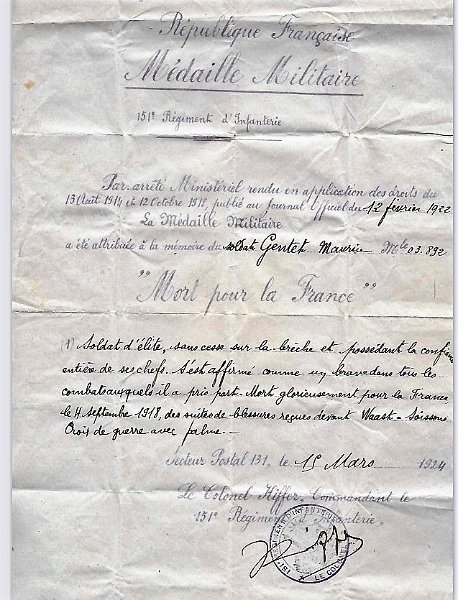 République Française
Médaille Militaire
151e Régiment d'Infanterie
Par arrêté Ministériel rendu en application des droits du
13 Août 1914 et 12 Octobre 1918, publié au Journal Officiel du 12 février 1922
La Médaille Militaire
a été attribuée à la mémoire du soldat Gentet Maurice Mle 03.892
"Mort pour la France"
Soldat d'élite, sans cesse sur la brèche et possédant la confian
entière de ses chefs. S'est affirmé comme un brave dans tous les
combats auxquels il a pris part. Mort glorieusement pour la France
le 4 septembre 1918, des suites de blessures reçues devant Soissons
Croix de guerre avec palme
Secteur Postal 131, le 15 Mars 1924
Le Colonel Commandant le
151e Régiment d'Infanterie,
LE COLONEL